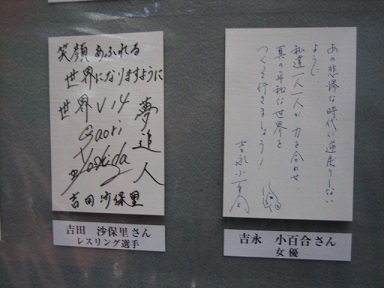 笑顔あふれる
世界になりますように
世界V14
夢追人
Saori
Yoshida
吉田沙保里
吉田 沙保里さん
レスリング選手
あの悲惨な時代に逆戻りしない
ように
私達一人一人が力を合わせ
真の平和な世界を
つくって行きましょう!
吉永小百合
吉永 小百合さん
女優